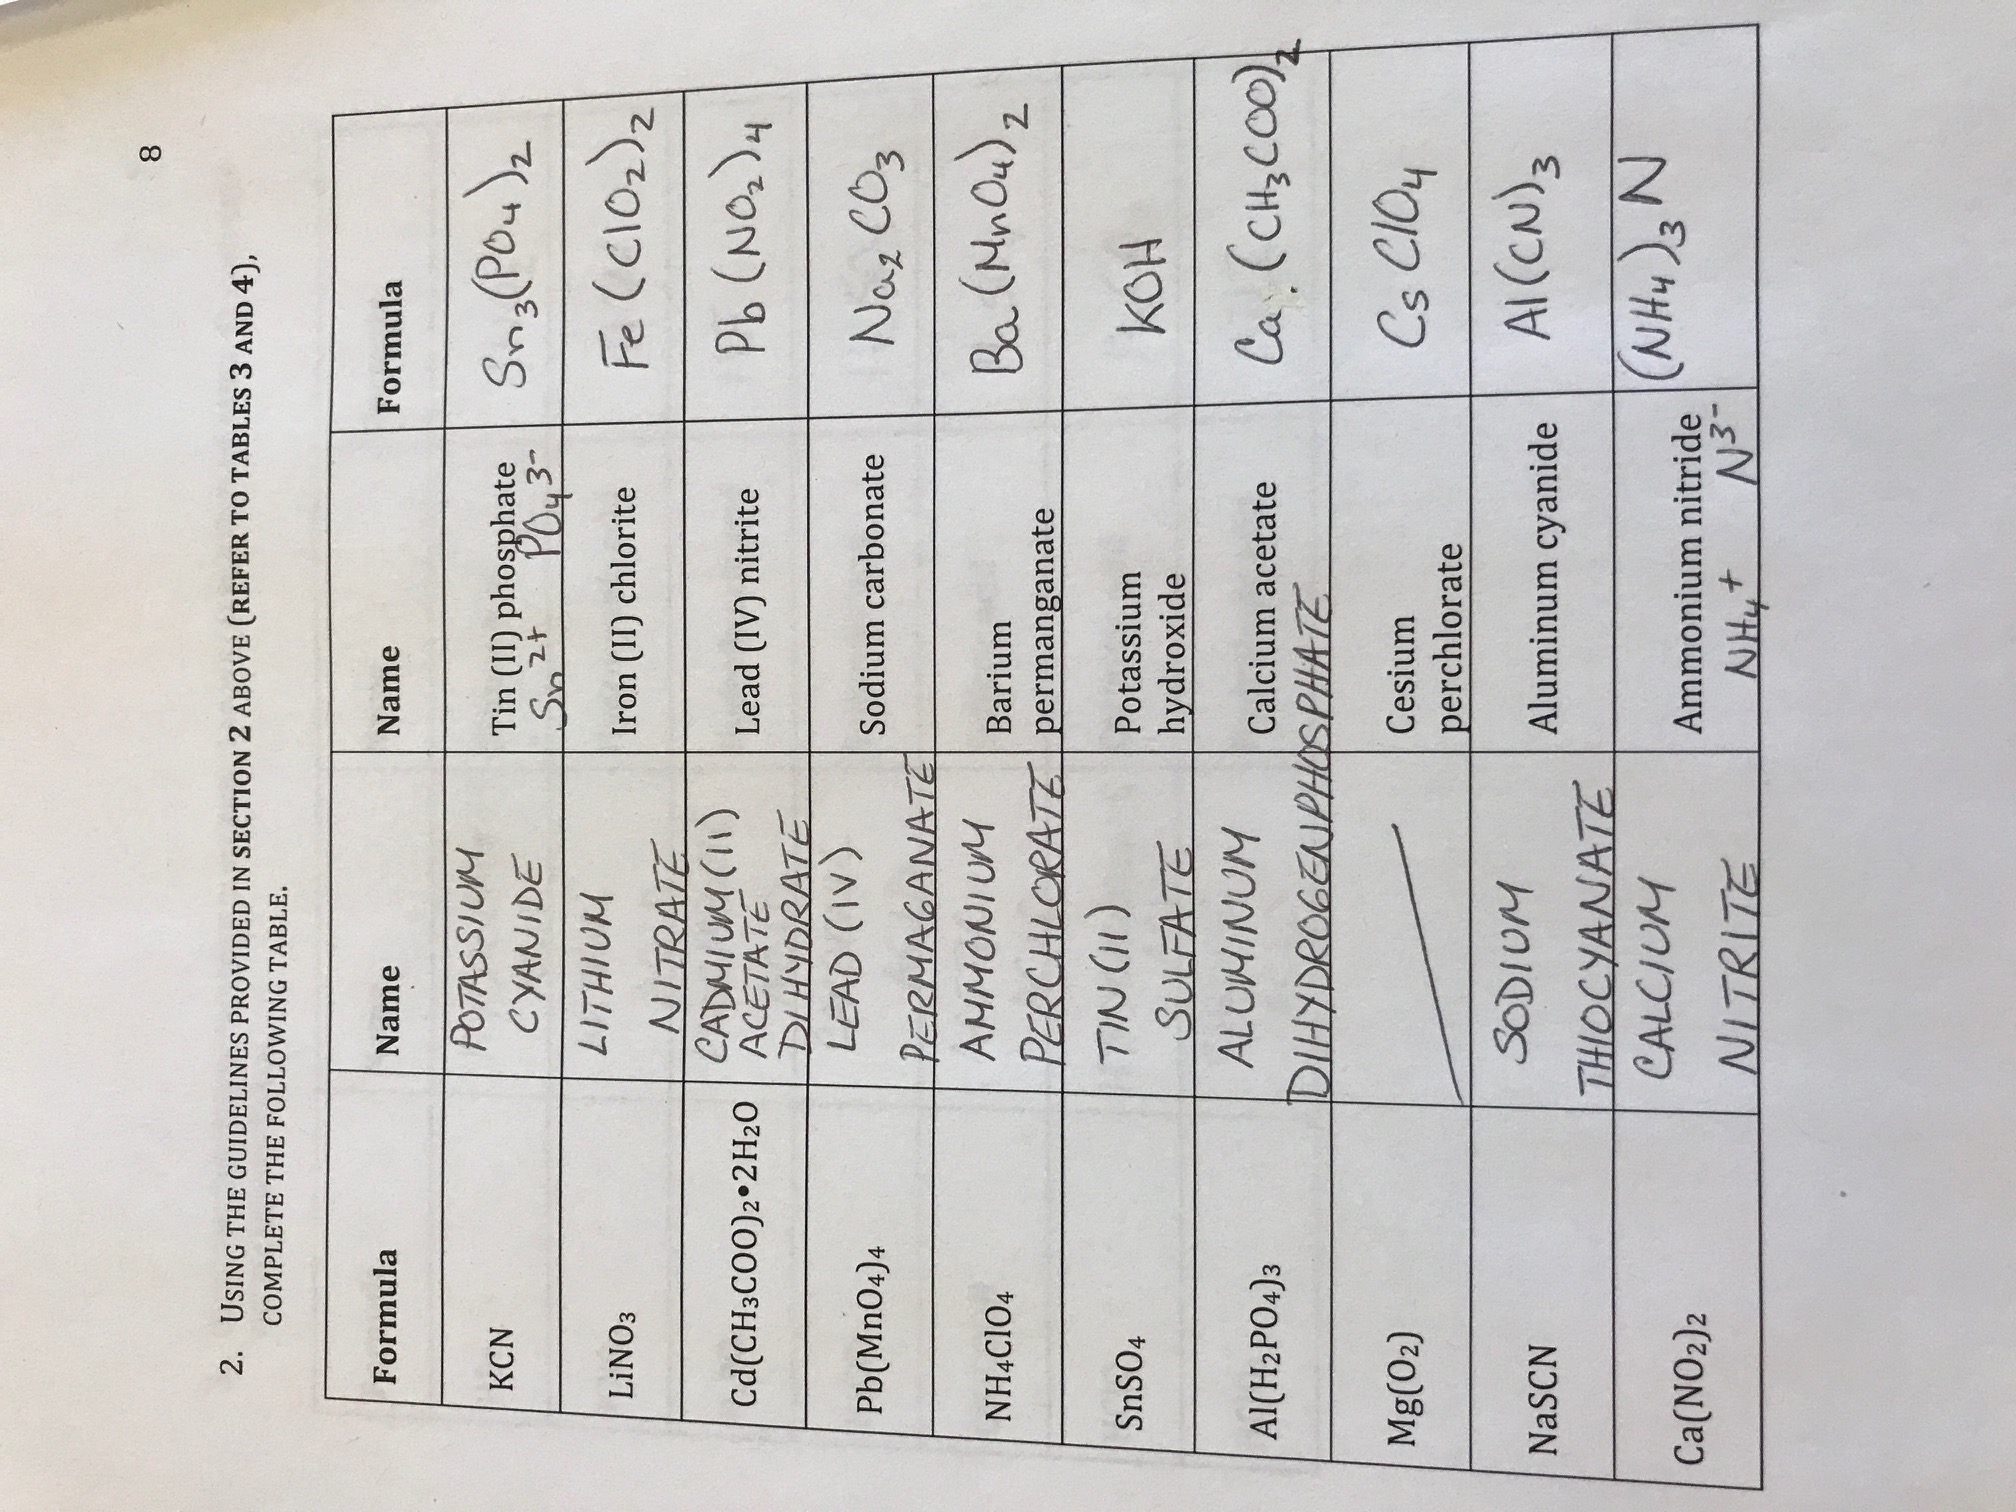 8
2. USING THE GUIDELINES PROVIDED IN SECTION 2 ABOVE (REFER TO TABLES 3 AND 4),
COMPLETE THE FOLLOWING TABLE.
Formula Name Name Formula
KCN POTASSIUM CYANIDE Tin (II) phosphate Sn2+ PO43- Sn3(PO4)2
LiNO3 LITHIUM NITRATE Iron (II) chlorite Fe(ClO2)2
Cd(CH3COO)2•2H2O CADMIUM(II) ACETATE DIHYDRATE Lead (IV) nitrite Pb(NO2)4
Pb(MnO4)4 LEAD (IV) PERMAGANATE Sodium carbonate Na2CO3
NH4ClO4 AMMONIUM PERCHLORATE Barium permanganate Ba(MnO4)2
SnSO4 TIN(II) SULFATE Potassium hydroxide KOH
Al(H2PO4)3 ALUMINUM DIHYDROGENPHOSPHATE Calcium acetate Ca(CH3COO)2
Mg(O2) Cesium perchlorate CsClO4
NaSCN SODIUM THIOCYANATE Aluminum cyanide Al(CN)3
Ca(NO2)2 CALCIUM NITRITE Ammonium nitride NH4+ N3- (NH4)3N